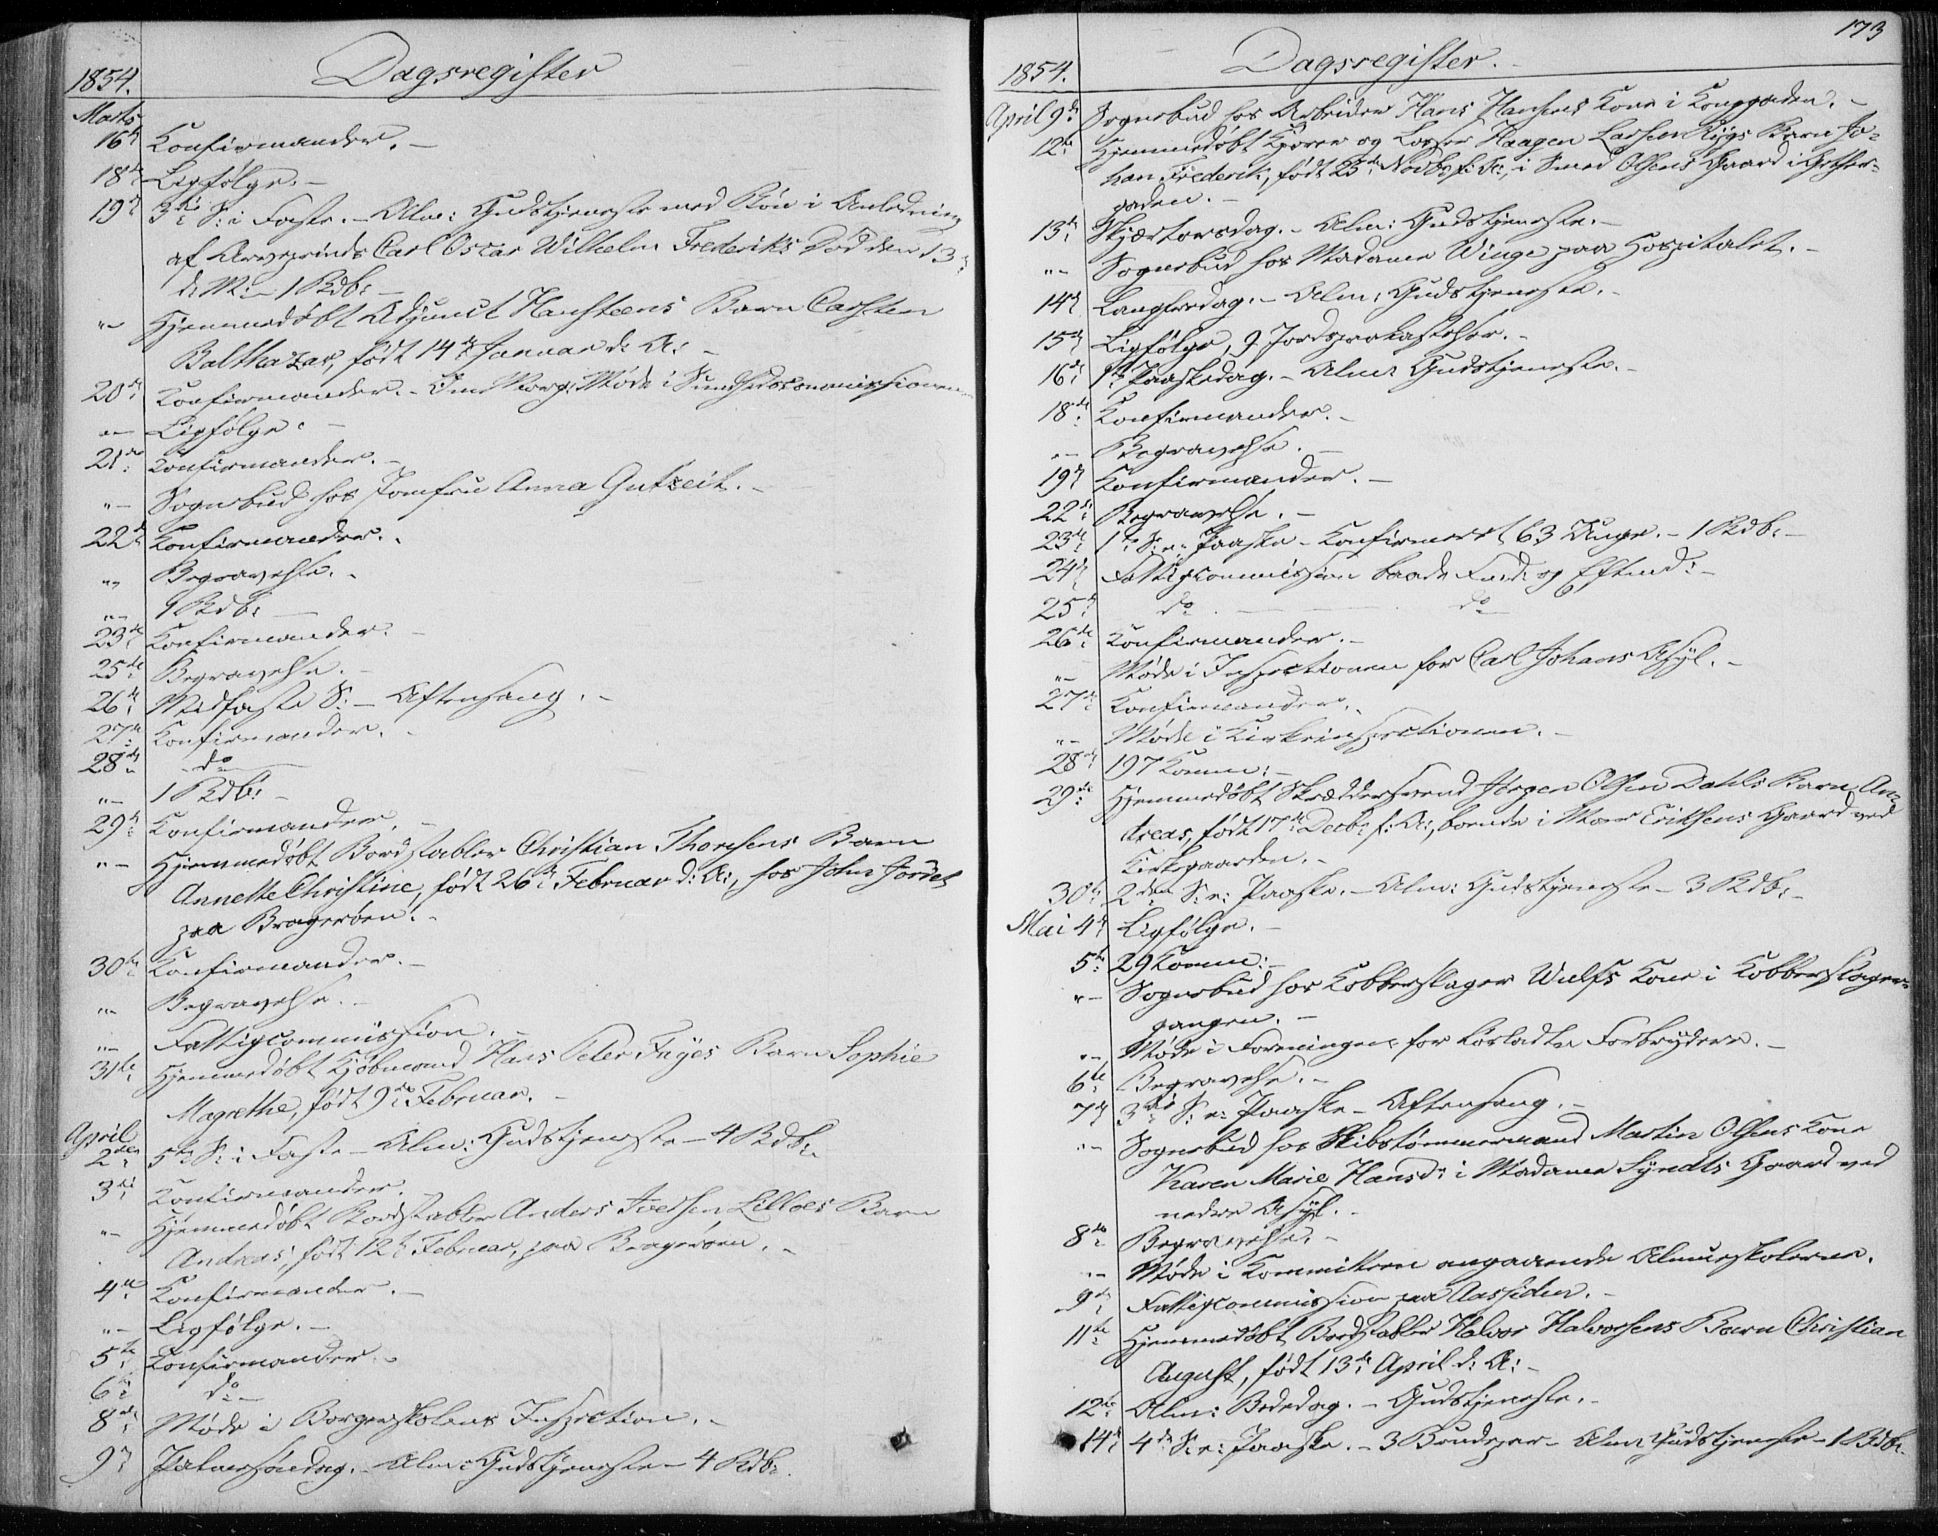 Dagsregister
1854.
Marts
16de Konfirmander. –
18de Ligfølge. –
19de 3die S: i Faste. – Alm: Gudstjeneste med Bøn i Anledning
af Arveprinds Carl Oscar Wilhelm Frederiks Død den 13de
d: M: – 1 Kdb: –
"– Hjemmedøbt Adjunct Hansteens Barn Carsten
Balthazar, født 14de Januar d: A: –
20de Konfirmander. – Møde i Sundhedscommissionen
"– Ligfølge. –
21de Konfirmander. –
"– Sognebud hos Jomfru Anna Gutzeit. –
22de Konfirmander. –
"– Begravelse. –
"– 9 Kdb: –
23de Konfirmander. –
25de Begravelse. –
26de Midfaste S: – Aftensang. –
27de Konfirmander. –
28de do
"– 1 Kdb: –
29de Konfirmander. –
"– Hjemmedøbt Bordstabler Christian Thoresens Barn
Annette Christine, født 26de Februar d: A:, hos John Jordet
paa Bragerøen. –
30te Konfirmander. –
"– Begravelse. –
"– Fattigcommission. –
31te Hjemmedøbt Kjøbmand Hans Peter Fuyes Barn Sophie
Magrethe, født 9de Februar. –
April
2den 5te S: i Faste – Alm: Gudstjeneste – 4 Kdb:
3die Konfirmander.
"– Hjemmedøbt Bordstabler Anders Iversen Lilloes Barn
Andreas, født 12te Februar, paa Bragerøen. –
4de Konfirmander. –
"– Ligfølge. –
5te Konfirmander. –
6te do –
8de Møde i Borgerskolens Inspection. –
9de Palmesøndag. – Alm: Gudstjeneste – 4 Kdb:
173
Dagsregister. –
1854.
April 9de Sognebud hos Arbeider Hans Hansens Kone i Konggaden. –
12te Hjemmedøbt Kjører og Losser Haagen Larsen Rygs Barn Jo-
han Frederik, født 25de Novbr f: A:, i Smed Olsens Gaard i
gaden. –
13de Skjærtorsdag. – Alm: Gudstjeneste. –
"– Sognebud hos Madame Winge paa Hospitalet. –
14de Langfredag. – Alm: Gudstjeneste. –
15de Ligfølge, 9 Jordspaakastelser. –
16de 1ste Paaskedag. – Alm: Gudstjeneste. –
18de Konfirmander. –
"– Begravelse. –
19de Konfirmander. –
22de Begravelse. –
23de 1ste S: e: Paaske – Konfirmeret 63 Unge. – 1 Kdb: –
24de Fattigcommission baade Form: og Efterm: –
25de do – do –
26de Konfirmander. –
"– Møde i Inspectionen for Carl Johans Asyl. –
27de Konfirmander. –
"– Møde i Kirkeinspectionen. –
28de 197 Komm: –
29de Hjemmedøbt Skræddersvend Jørgen Olsen Dahls Barn An-
dreas, født 17de Decbr f: A:, boende i Mons Eriksens Gaard ved
Kirkegaarden. –
30te 2den S: e: Paaske. – Alm: Gudstjeneste – 3 Kdb: –
Mai 4de Ligfølge. –
5te 29 Komm: –
"– Sognebud hos Kobberslager Wulfs Kone i Kobberslager-
gangen. –
"– Møde i Foreningen for løsladte Forbrydere. –
6te Begravelse. –
7de 3die S: e: Paaske – Aftensang. –
"– Sognebud hos Skibstømmermand Martin Olsens Kone
Karen Marie Hansdr i Madame Syndts Gaard ved
nedre Asyl. –
8de Begravelse. –
"– Møde i Kommitteen angaaende Almueskolerne.
9de Fattigcommission paa Aassiden. –
11te Hjemmedøbt Bordstabler Halvor Halvorsens Barn Christian
August, født 13de April d: A: –
12te Alm: Bededag. – Gudstjeneste. –
14de 4de S: e: Paaske. – 3 Brudepar – Alm: Gudstjeneste – 1 Kdb: